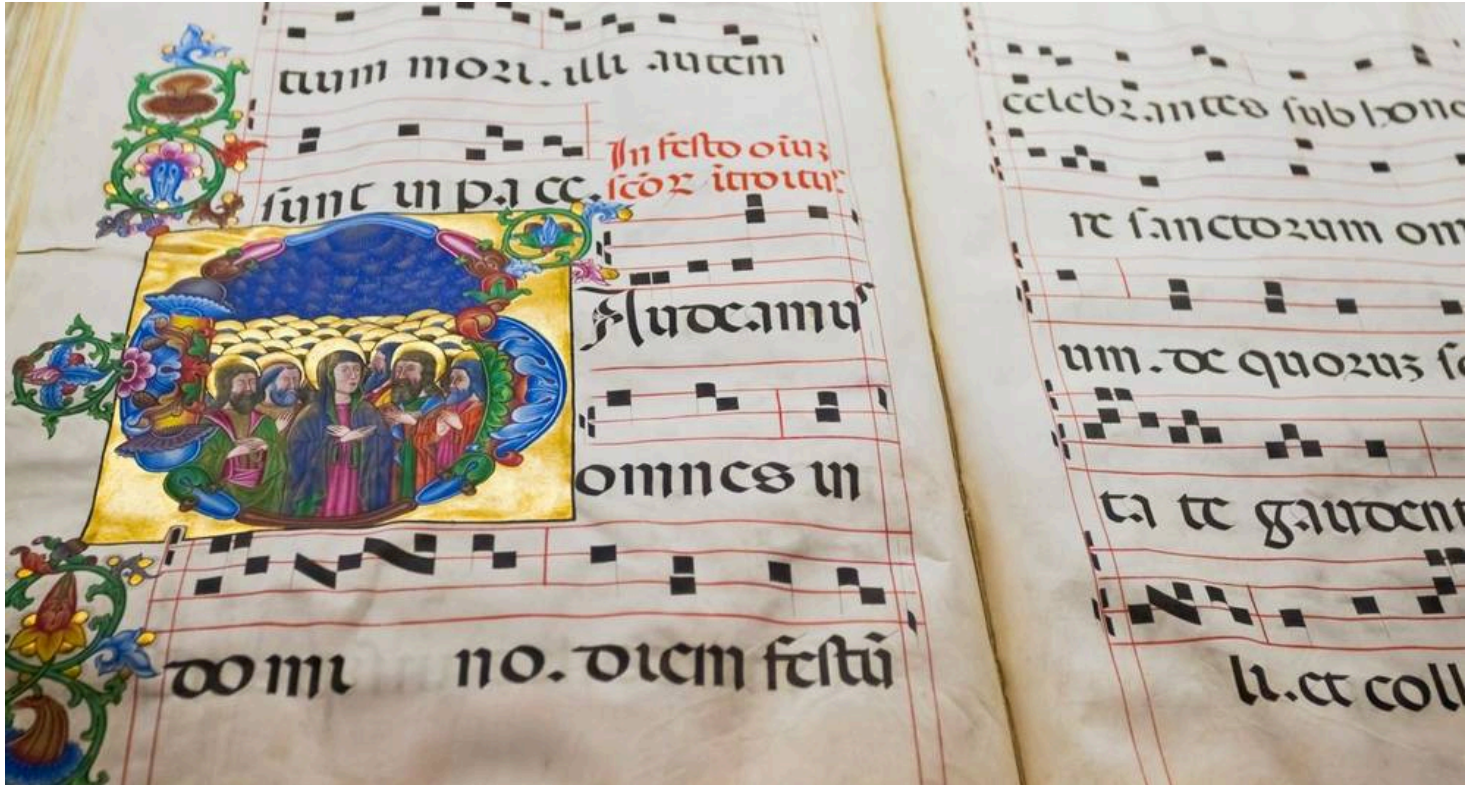 tium mori. illi autem
sunt in pa ce.
In festo oiuʒ
scoꝝ itroitus
Audeamus
omnes in
do mi no. diem festū
celebrantes sub hono
re sanctorum om
um. de quoruʒ so
ta te gaudent
li. et coll